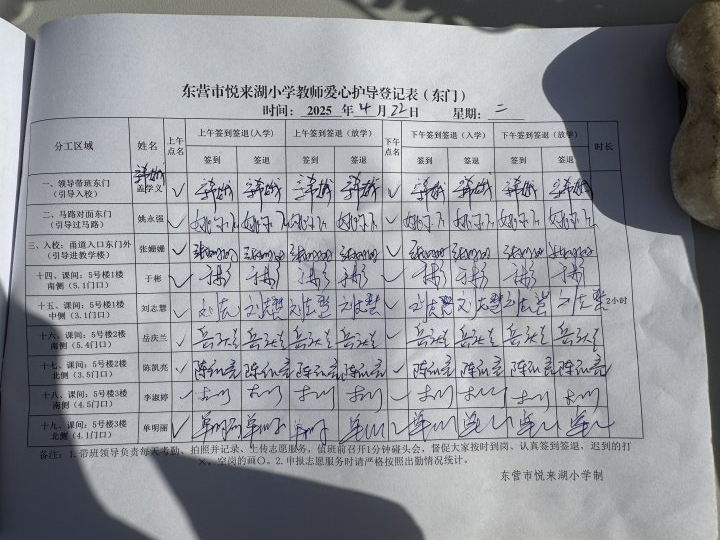 东营市悦来湖小学教师爱心护导登记表（东门）
时间： 2025 年 4 月 22 日 星期： 二
分工区域 姓名 上午点名 上午签到签退(入学) 上午签到签退（放学） 下午点名 下午签到签退（入学） 下午签到签退（放学） 时长
签到 签退 签到 签退 签到 签退 签到 签退
一、领导带班东门 盖学义 ✓ ✓
（引导入校）
二、马路对面东门 姚永强 ✓ 姚永强 姚永强 姚永强 姚永强 ✓ 姚永强 姚永强 姚永强 姚永强
（引导过马路）
三、入校：甬道入口东门外 张姗姗 ✓ 张姗姗 张姗姗 张姗姗 张姗姗 ✓ 张姗姗 张姗姗 张姗姗 张姗姗
（引导进教学楼）
十四、课间：5号楼1楼 于彬 ✓ 于彬 于彬 于彬 于彬 ✓ 于彬 于彬 于彬 于彬
南侧（5.1门口）
十五、课间：5号楼1楼 刘志慧 ✓ 刘志 刘志慧 刘志慧 刘志慧 ✓ 刘志慧 刘志慧 刘志慧 刘志慧 2小时
中侧（3.1门口）
十六、课间：5号楼2楼 岳庆兰 ✓ 岳庆兰 岳庆兰 岳庆兰 岳庆兰 ✓ 岳庆兰 岳庆兰 岳庆兰 岳庆兰
南侧（5.4门口）
十七、课间：5号楼2楼 陈凯亮 ✓ 陈凯亮 陈凯亮 陈凯亮 陈凯亮 ✓ 陈凯亮 陈凯亮 陈凯亮 陈凯亮
北侧（3.5门口）
十八、课间：5号楼3楼 李淑婷 ✓ ✓
南侧（4.5门口）
十九、课间：5号楼3楼 单明丽 ✓ 单明丽 单明丽 单明丽 ✓
北侧（4.1门口）
备注：1.带班领导负责每天考勤、拍照并记录、上传志愿服务，值班前召开1分钟碰头会，督促大家按时到岗、认真签到签退，迟到的打
×、空岗的画〇。2.申报志愿服务时请严格按照出勤情况统计。
东营市悦来湖小学制